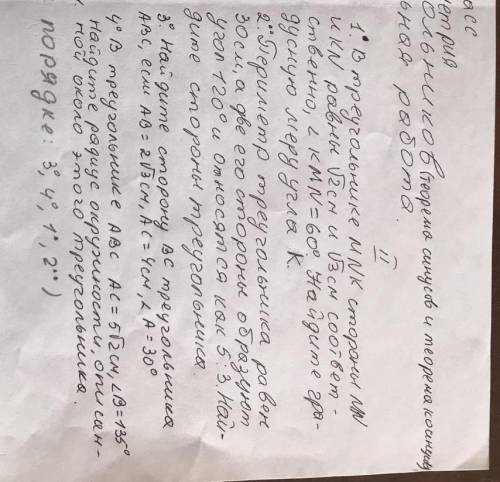 асс
метрия
ольников (теорема синусов и теорема косинусов)
ьная работа.
II
1° В треугольнике MNK стороны MN
и KN равны √2см и √3см соответ-
ственно, ∠KMN=60° Найдите гра-
дусную меру угла K.
2°° Периметр треугольника равен
30см, а две его стороны образуют
угол 120° и относятся как 5:3. Най-
дите стороны треугольника
3° Найдите сторону BC треугольника
ABC, если AB=2√3см, AC=4см, ∠A=30°
4° В треугольнике ABC AC=5√2см, ∠B=135°
найдите радиус окружности, описан-
ной около этого треугольника.
порядке: 3°, 4°, 1°, 2°°)